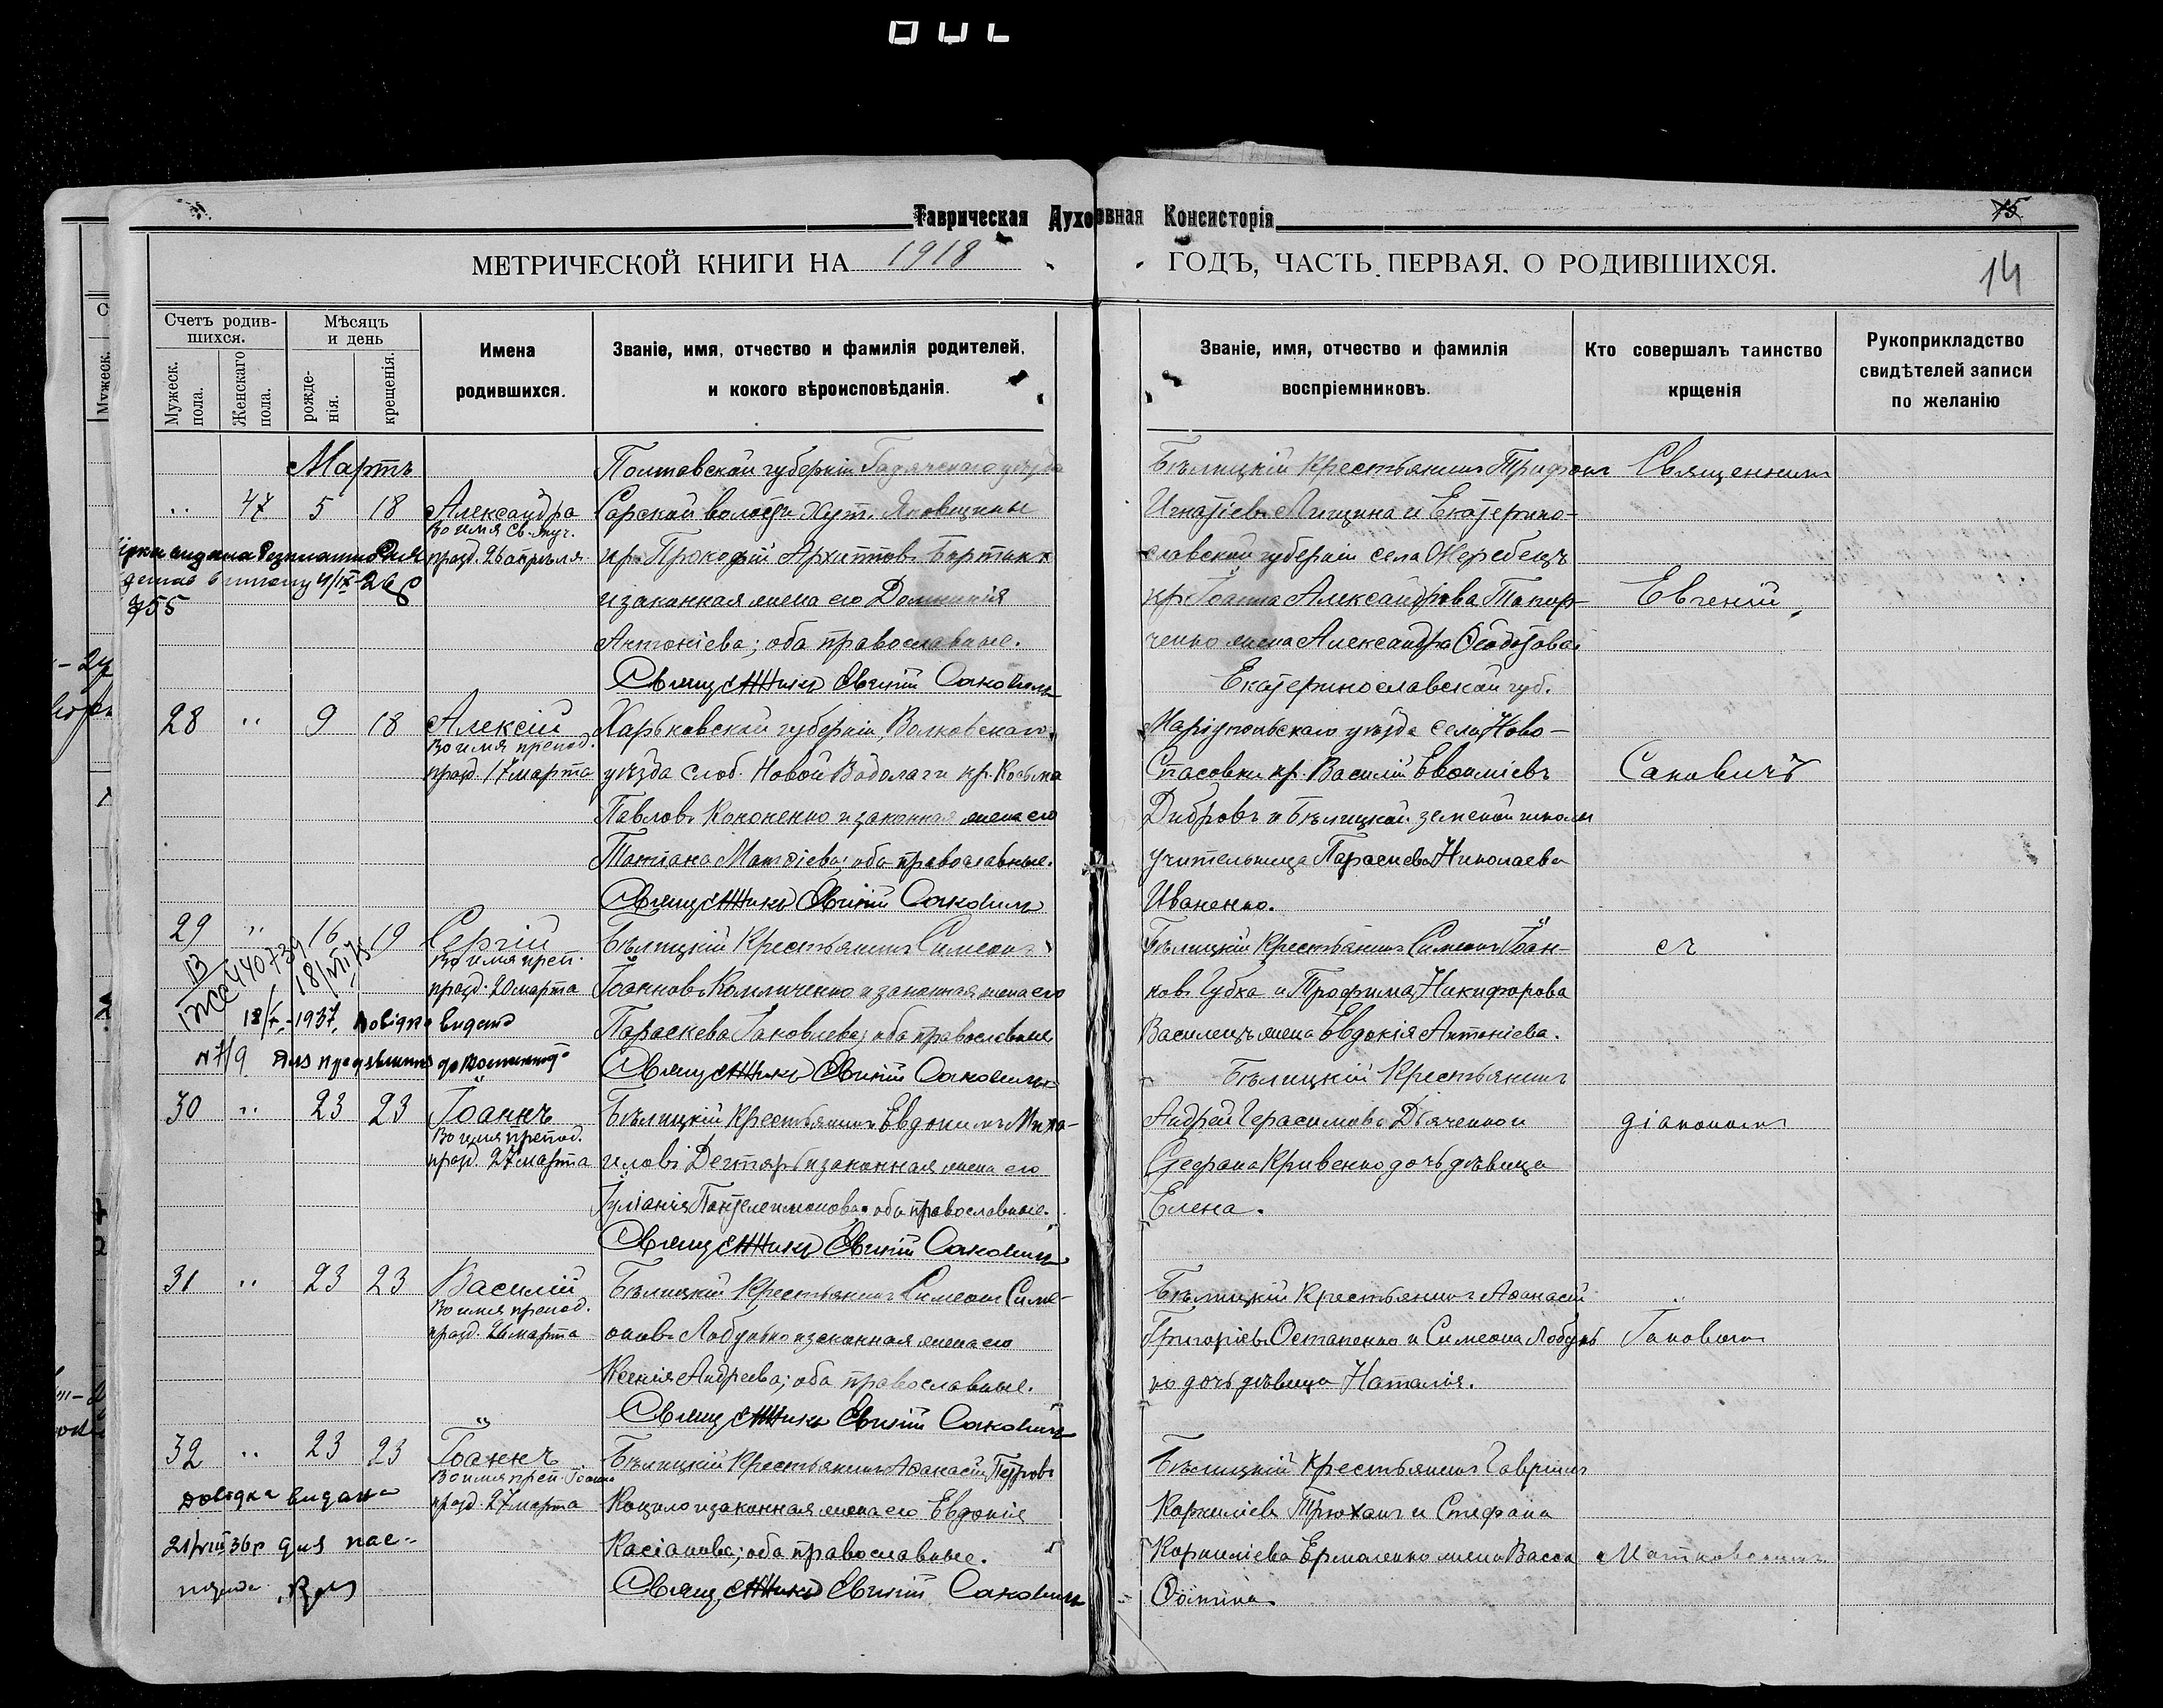 Таврическая Духовная Консисторія
15
МЕТРИЧЕСКОЙ КНИГИ НА 1918 ГОДЪ, ЧАСТЬ ПЕРВАЯ. О РОДИВШИХСЯ.
14
Счетъ родившихся.
Мужеск. пола.
Женскаго пола.
Мѣсяцъ и день
рожденія.
крещенія.
Имена родившихся.
Званіе, имя, отчество и фамилія родителей, и кокого вѣроисповѣданія.
Званіе, имя, отчество и фамилія воспріемниковъ.
Кто совершалъ таинство крщенія
Рукоприкладство свидѣтелей записи по желанію
Мартъ
47 5 18 Александра
Во имя Св. муч.
празд. 26 апрѣля
755
Полтавской губерніи Гадячскаго уѣзда
Сарской волости хут. Яковщины
кр. Прокофій Архиппов
и законная жена его Домникія
Антоніева; оба православные.
Священникъ Евгеній Саковичъ
Бѣлицкій крестьянинъ Трифонъ
Игнатіевъ Лищина и Екатерино-
славской губерніи села Жеребецъ
кр. Іоанна Александрова Топор-
ченко жена Александра Ѳеодотова.
Священникъ
Евгеній
28 " 9 18 Алексій
Во имя препод.
празд. 17 марта
Харьковской губерніи, Валковскаго
уѣзда слоб. Новой Водолаги кр. Косьма
Павловъ Кононенко и законная жена его
Татіана Матѳіева; оба православные.
Священникъ Евгеній Саковичъ
Екатеринославской губ.
Маріупольскаго уѣзда села Ново-
Спасовки кр. Василій Евѳиміевъ
Дибровъ и Бѣлицкой земской школы
учительница Параскева Николаева
Иваненко.
Саковичъ
29 " 16 19 Сергій
Во имя преп.
празд. 20 марта
18/ 1937 довідка видана
Бѣлицкій Крестьянинъ Симеонъ
Іоанновъ и законная жена его
Параскева Іаковлева; оба православные
Священникъ Евгеній Саковичъ
Бѣлицкій Крестьянинъ Симеонъ Іоан-
новъ Губка и Трофима Никифорова
Василецъ жена Евдокія Антоніева.
съ
30 " 23 23 Іоаннъ
Во имя препод.
празд. 27 марта
Бѣлицкій Крестьянинъ Евдокимъ Миха-
иловъ Дегтярь и законная жена его
Іуліанія Пантелеимонова; оба православные.
Священникъ Евгеній Саковичъ
Бѣлицкій Крестьянинъ
Андрей Герасимовъ Дьяченко и
Стефана Кривенко дочь дѣвица
Елена.
діакономъ
31 " 23 23 Василій
Во имя препод.
празд. 26 марта
Бѣлицкій Крестьянинъ Симеонъ Симе-
оновъ Лобунько и законная жена его
Ксенія Андреева; оба православные.
Священникъ Евгеній Саковичъ
Бѣлицкій Крестьянинъ Аѳанасій
Григоріевъ Остапенко и Симеона Лобунь
ко дочь дѣвица Наталія.
Іаковомъ
32 " 23 23 Іоаннъ
Во имя преп. Іоанна
празд. 27 марта
довідка видана
21/VIII 36р для пас-
порта
Бѣлицкій Крестьянинъ Аѳанасій Петровъ
Коцило и законная жена его Евдокія
Касіанова; оба православные.
Священникъ Евгеній Саковичъ
Бѣлицкій Крестьянинъ Гавріилъ
Корниліевъ Трюханъ и Стефана
Корниліева Ермоленко жена Васса
Ѳомина.
Матковскимъ